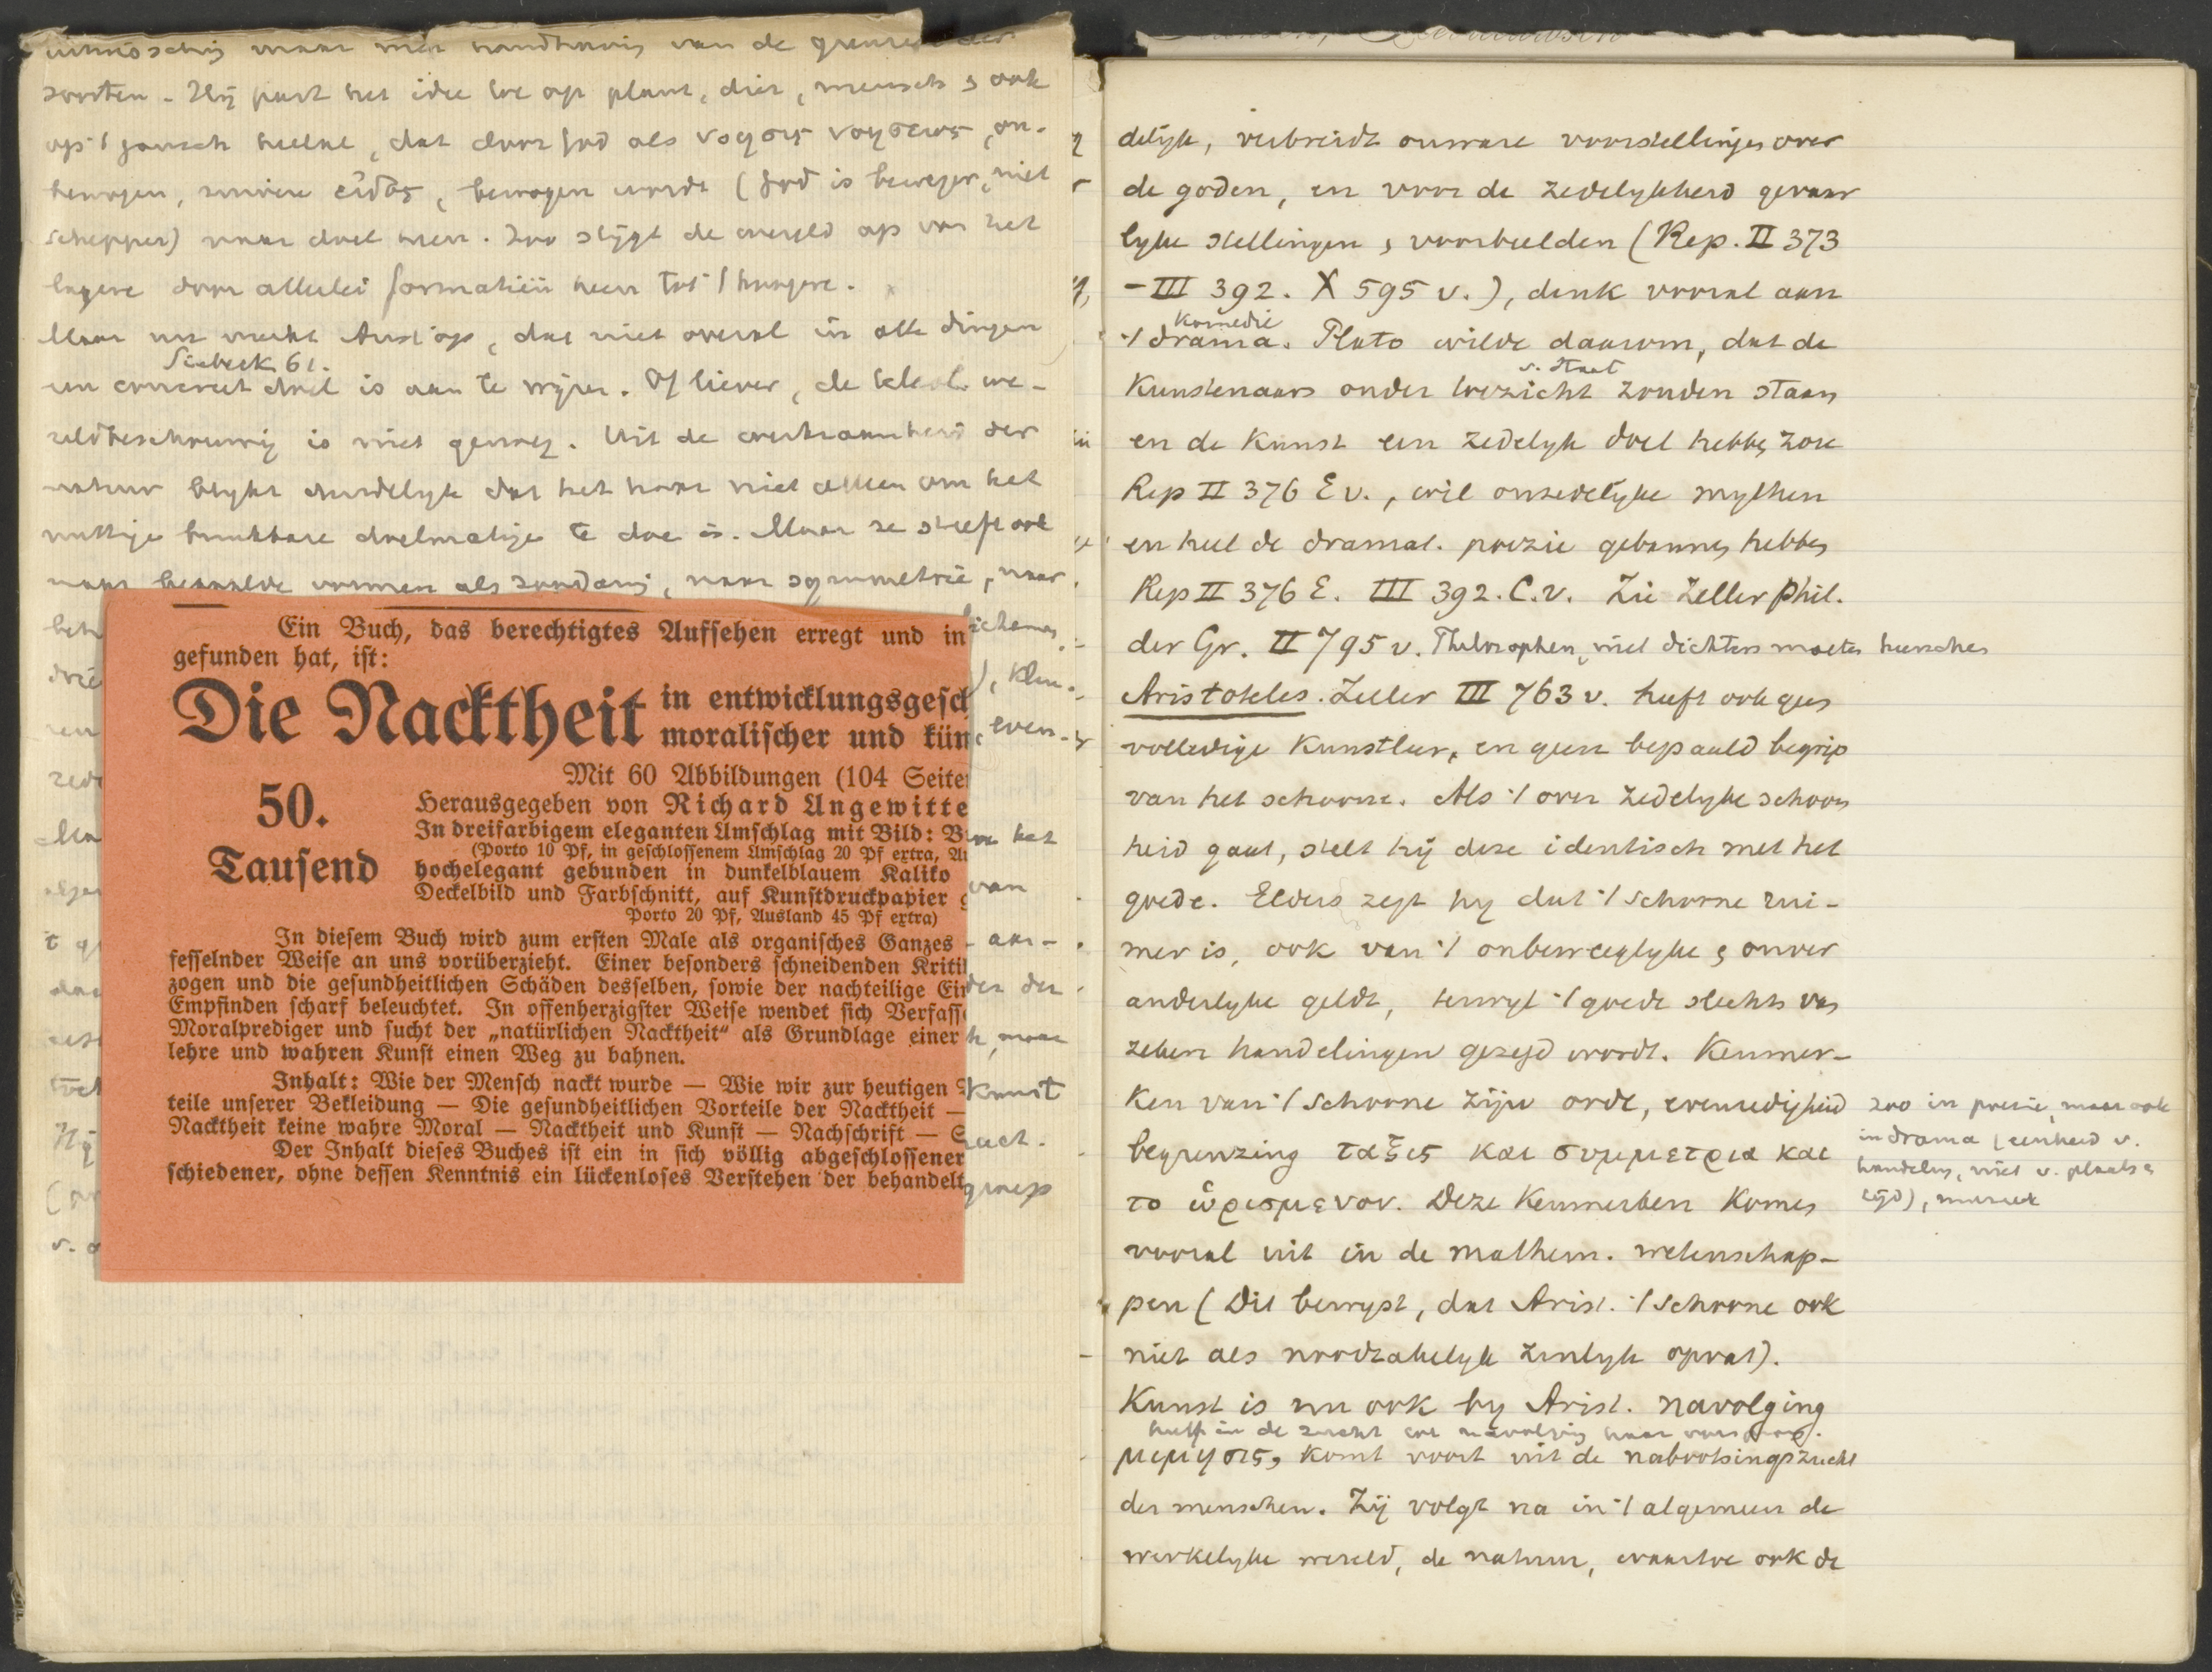 soorten. Hij past het idee toe op plant, dier, mensch & ook
op 't gansch heelal, dat door God als νοησις νοησεως, on-
bewogen, zuivere εἶδος, bewogen wordt (God is beweger, niet
schepper) naar doel heen. Zoo stijgt de wereld op van het
lagere door allerlei formatiën heen tot 't hoogere.
Maar nu merkt Arist. op, dat niet overal in alle dingen
Siebeck 61.
een concreet doel is aan te wijzen. Of liever, de teleol. we-
reldbeschouwing is niet genoeg. Uit de werkzaamheid der
natuur blykt duidelyk dat het haar niet alleen om het
nuttige bruikbare doelmatige te doe is. Maar ze streeft ook
naar bepaalde vormen als zoodanig, naar symmetrie, naar
Ein Buch, das berechtigtes Aufsehen erregt und in
gefunden hat, ist:
Die Nacktheit
in entwicklungsgesch
moralischer und kün
Mit 60 Abbildungen (104 Seite
50.
Tausend
Herausgegeben von Richard Ungewitte
In dreifarbigem eleganten Umschlag mit Bild: B
(Porto 10 Pf, in geschlossenem Umschlag 20 Pf extra, Au
hochelegant gebunden in dunkelblauem Kaliko
Deckelbild und Farbschnitt, auf Kunstdruckpapier g
Porto 20 Pf, Ausland 45 Pf extra)
In diesem Buch wird zum ersten Male als organisches Ganzes
fesselnder Weise an uns vorüberzieht. Einer besonders schneidenden Kriti
zogen und die gesundheitlichen Schäden desselben, sowie der nachteilige Ein
Empfinden scharf beleuchtet. In offenherzigster Weise wendet sich Verfass
Moralprediger und sucht der „natürlichen Nacktheit" als Grundlage einer
lehre und wahren Kunst einen Weg zu bahnen.
Inhalt: Wie der Mensch nackt wurde — Wie wir zur heutigen
teile unserer Bekleidung — Die gesundheitlichen Vorteile der Nacktheit —
Nacktheit keine wahre Moral — Nacktheit und Kunst — Nachschrift —
Der Inhalt dieses Buches ist ein in sich völlig abgeschlossener
schiedener, ohne dessen Kenntnis ein lückenloses Verstehen der behandelt
even-
van
Kunst
delijk, verbreidt onware voorstellingen over
de goden, en voor de zedelykheid gevaar
lyke stellingen & voorbeelden (Rep. II 373
– III 392. X 595 v.), denk vooral aan
komedie
't drama. Plato wilde daarom, dat de
v. Staat
Kunstenaars onder toezicht zouden staan
en de Kunst een zedelyk doel hebben zoie
Rep II 376 E v., wil onzedelijke mythen
en heel de dramat. poezie gebannen hebben
Rep II 376 E. III 392. C. v. Zie Zeller Phil.
der Gr. II 795 v. Philosophen, niet dichters moeten heerschen
Aristoteles. Zeller III 763 v. heeft ook geen
volledige Kunstleer, en geen bepaald begrip
van het schoone. Als 't over zedelyke schoon
heid gaat, stelt hij deze identisch met het
goede. Elders zegt hy dat 't schoone rui-
mer is, ook van 't onbeweeglyke & onver
anderlyke geldt, terwyl 't goede slechts van
zekere handelingen gezegd wordt. Kenmer-
ken van 't schoone zijn orde, evenredigheid
begrenzing ταξις και συμμετρια και
το ὡρισμενον. Deze Kenmerken Komen
vooral uit in de mathem. wetenschap-
pen (Dit bewyst, dat Arist. 't schoone ook
niet als noodzakelyk zinlyk opvat).
Kunst is nu ook by Arist. navolging
heeft in de zucht tot navolging haar oorsprong.
μιμησις, komt voort uit de nabootsingszucht
der menschen. Zij volgt na in 't algemeen de
werkelyke wereld, de natuur, waartoe ook de
zoo in poezie, maar ook
in drama (eenheid v.
handeling, niet v. plaats &
tijd), muziek